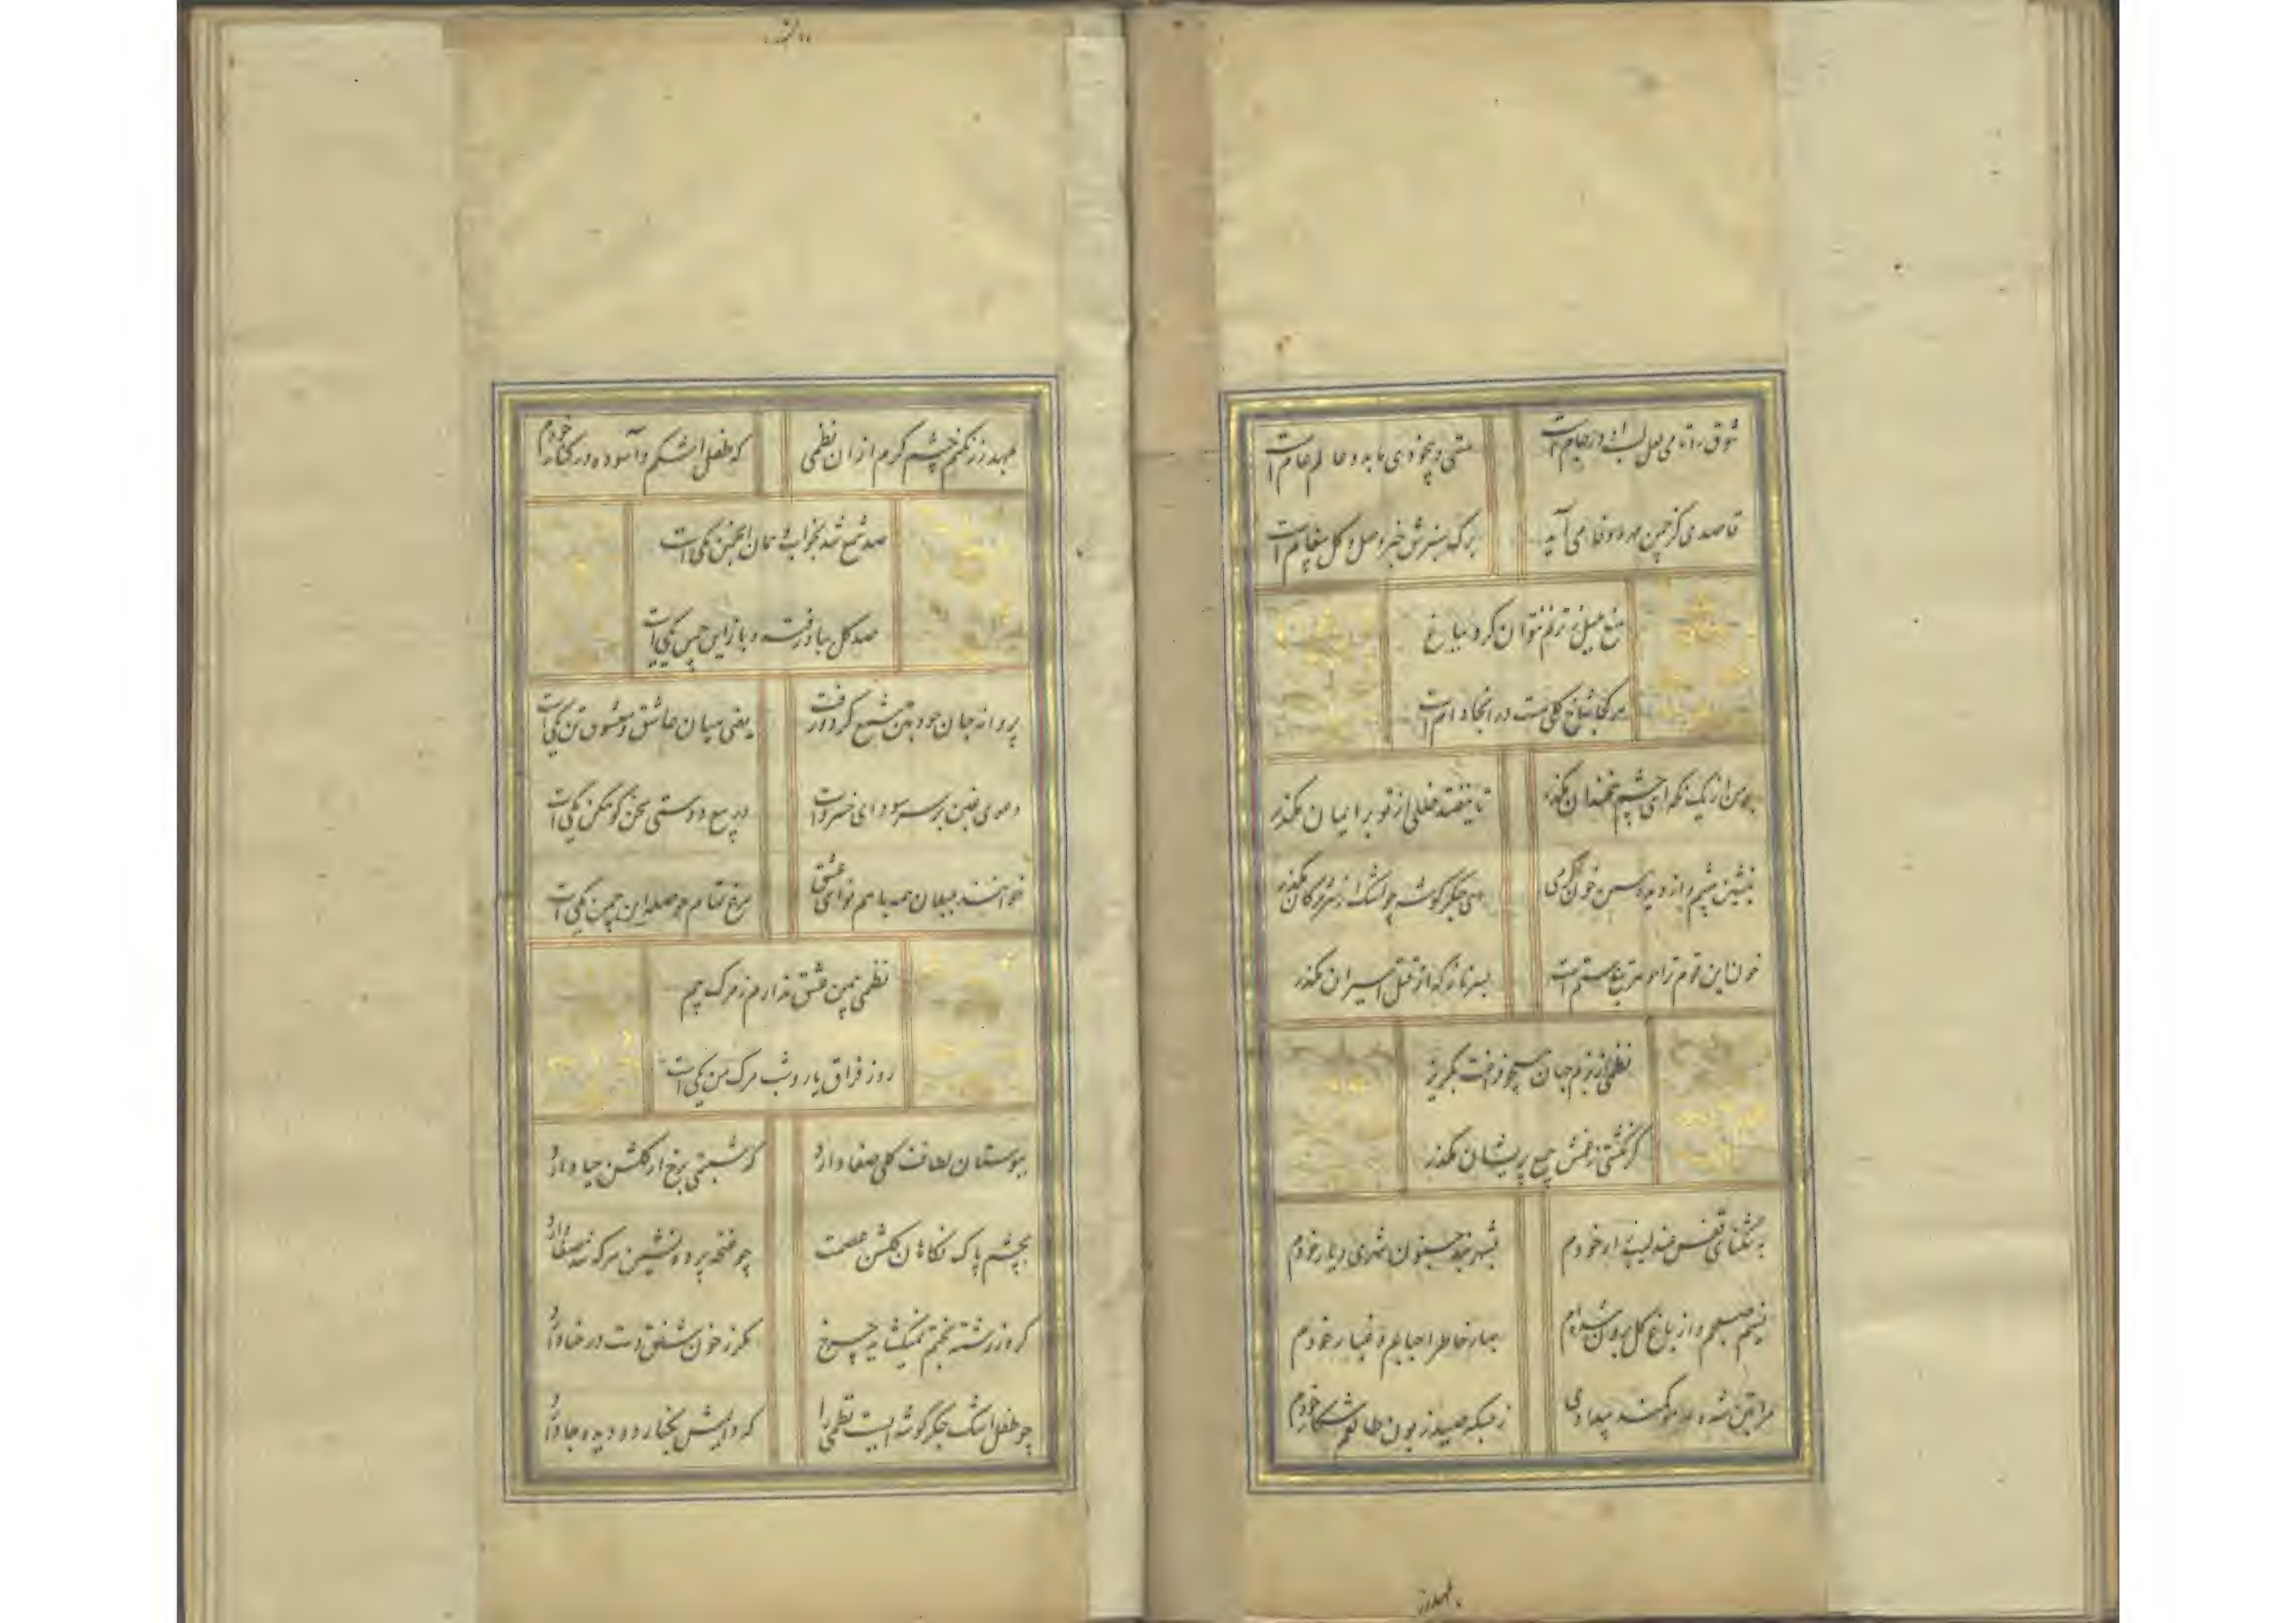 شوق را تا می لعل لب او در جام است
مستی و بیخودی ما به دو عالم عام است
قاصدی کز چمن مهر و وفا می آید
برک سبزش خبر وصل و کل پیغام است
منع بلبل ز ترنم نتوان کرد بباغ
هر کجا شاخ کلی هست در انجا دام است
من از یک نکه ای چشم مکذر
تا نیفتد خللی از تو بر ایمان مکذر
بنشین پیشم و از دیده من خون
ای جکر کوشه چو اشک از سر مژکان مکذر
خون این قوم ترا جوهر تیغ ستم است
بسر ناز که از قتل اسیران مکذر
نظمی از بزم جهان
کر کذشتی ز غمش جمع پریشان مکذر
به تنکنای قفس عندلیب زار خودم
بشهر بند جنون شهری دیار خودم
نسیم صبحم و از باغ کل برون شده ام
خاطر احبابم و غبار خودم
کمند صیادی
ز بسکه صید زبون طالعم شکار خودم
بهدوز
بمهد نرکنم چشم کرم از ان نظمی
که طفل اشکم و آسوده در کنار خودم
صد شمع شد بخواب و همان انجمن یکی است
صد کل بباد رفت و باز این چمن یکی است
پروانه جان خود بتن شمع کرد و رفت
یعنی میان عاشق و معشوق تن یکی است
دعوی غبن بر سر سودای خسرو است
در بیع دوستی سخن کوهکن یکی است
خوانند بلبلان همه با هم نوای عشق
مرغ تمام حوصله این چمن یکی است
نظمی بمن عشق ندارم ز مرک بیم
روز فراق یار و شب مرک من یکی است
ببوستان لطافت کلی صفا دارد
که شبنمی برخ از کلشن حیا دارد
بچشم پاک نکاهان کلشن عصمت
چو غنچه پرده نشین هر که شد صفا دارد
کره ز رشته بختم نمیکشاید چرخ
مکر ز خون شفق دست در حنا دارد
چو طفل اشک جکر کوشه ایست نظمی را
که دایمش بکنار دو دیده جا دارد